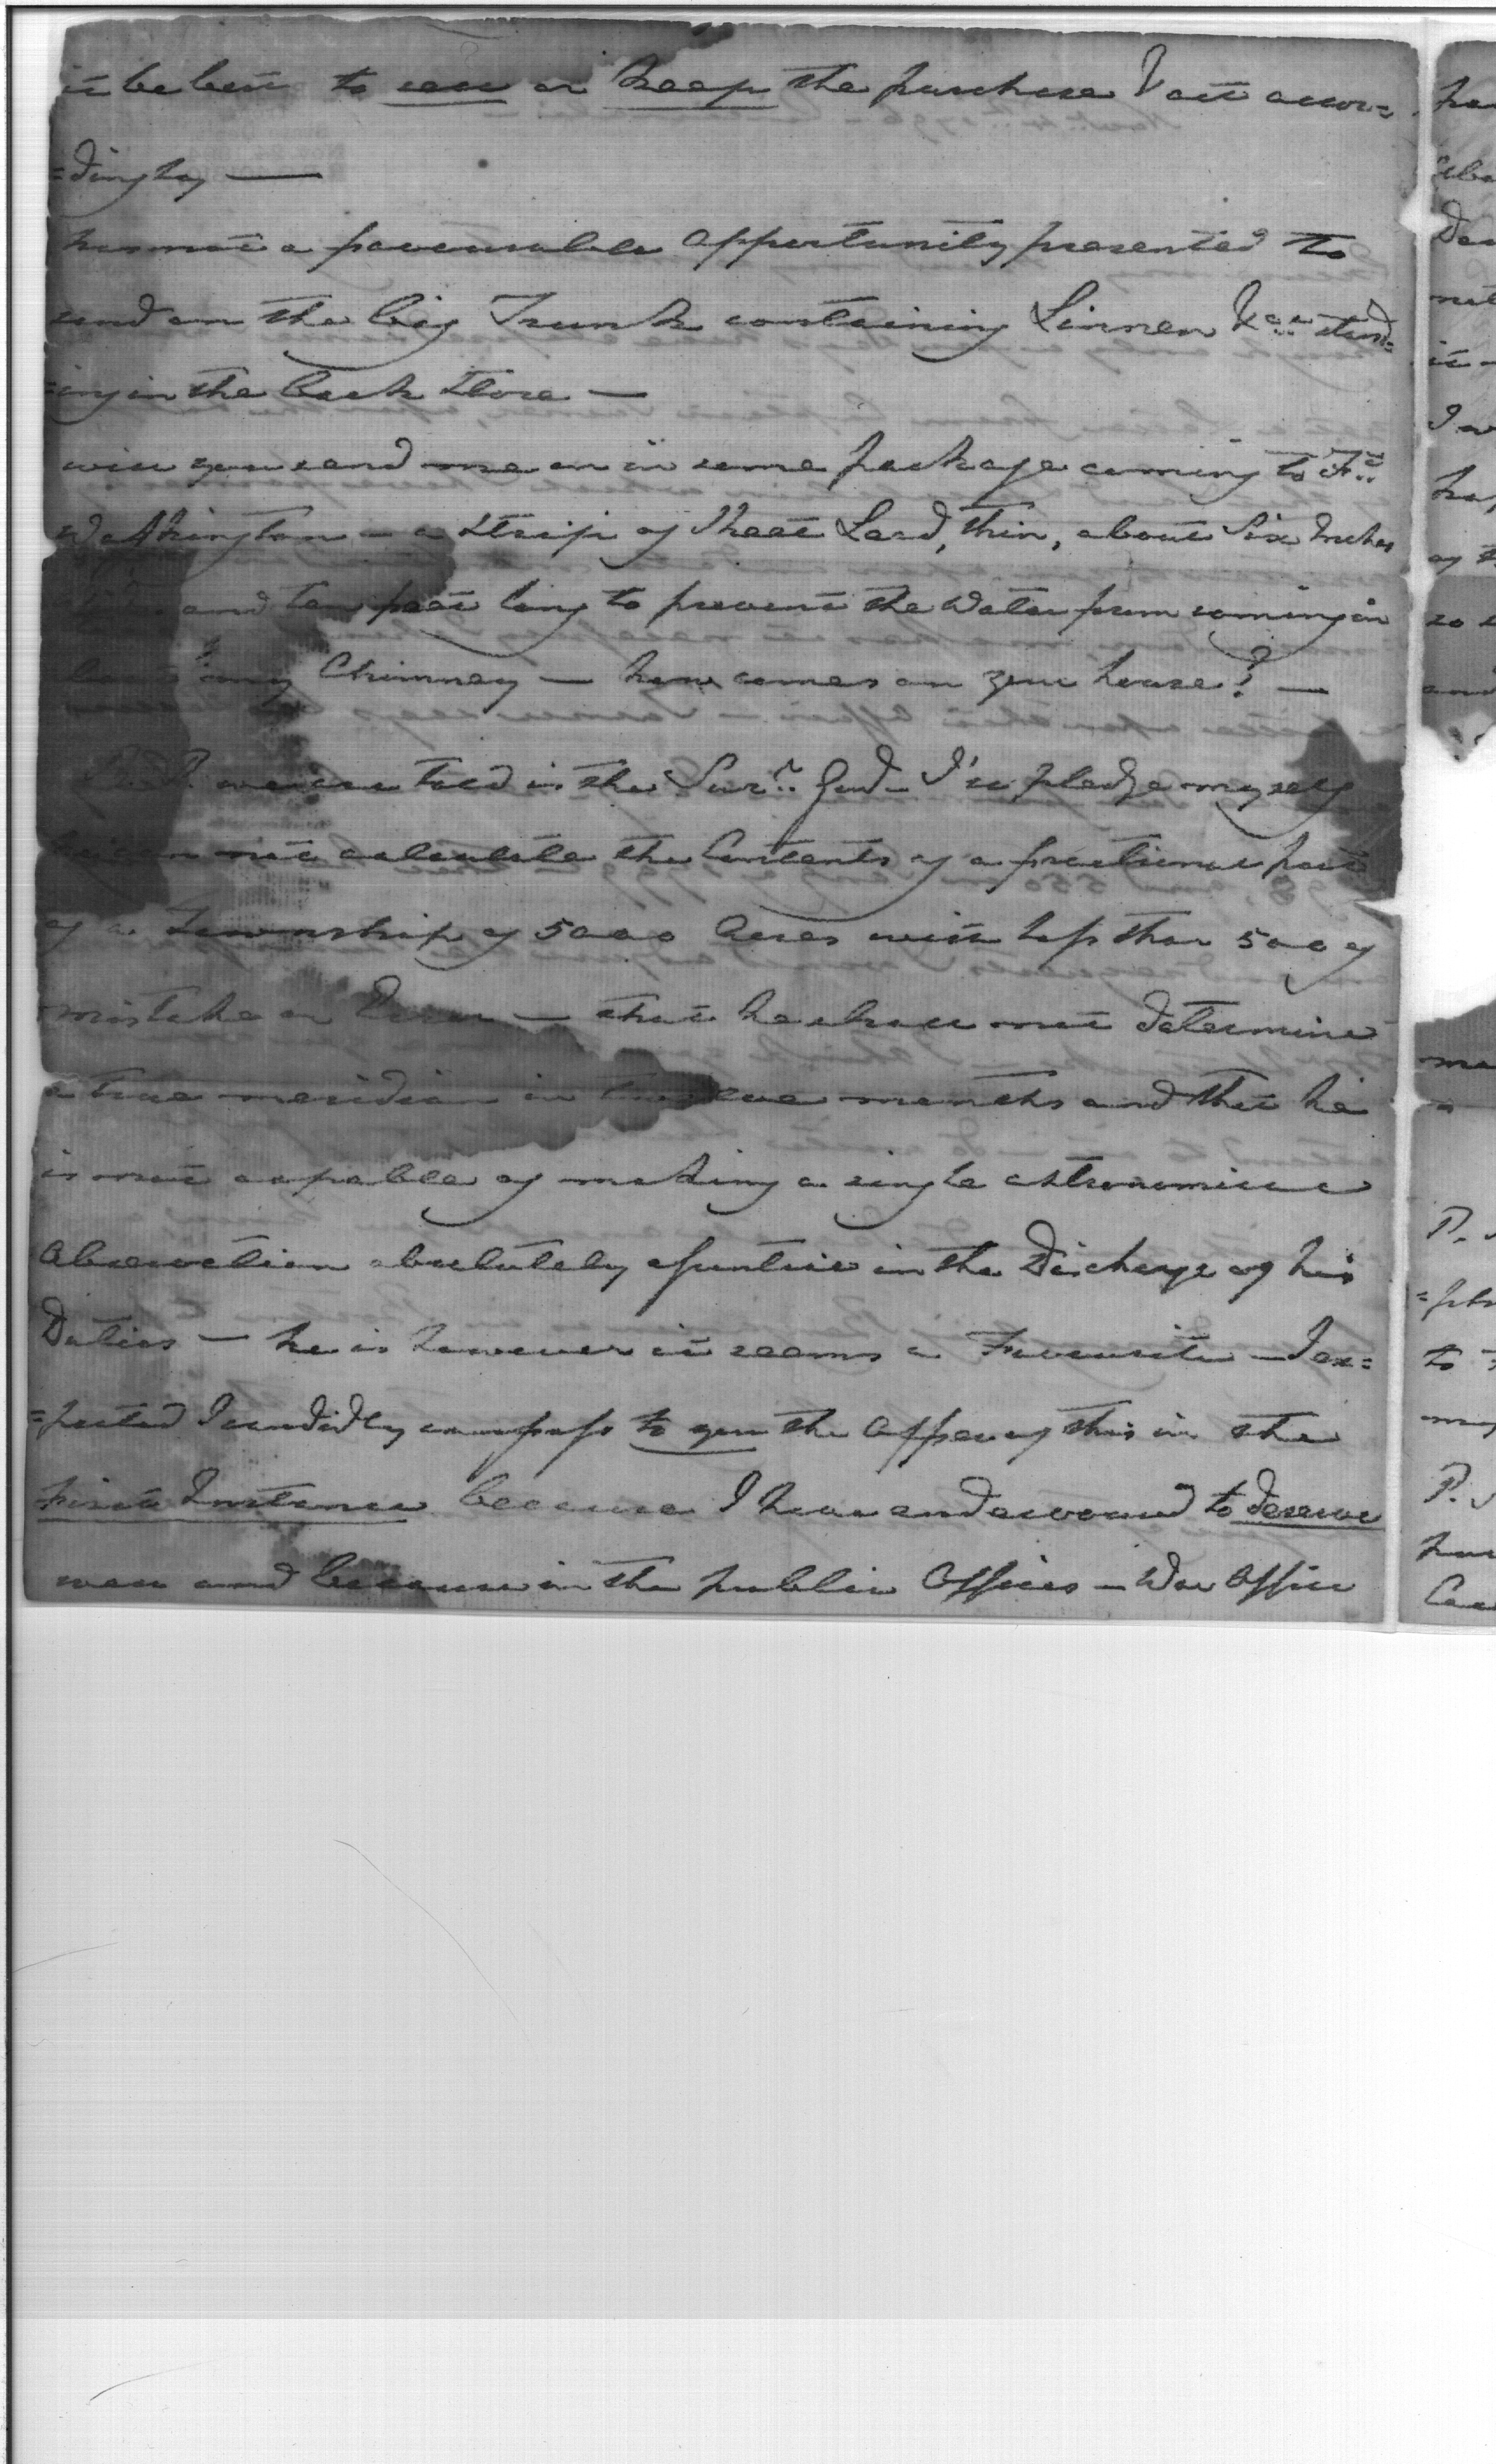 it be best to sell or keep the purchase & act accor=
=dingly —
has not a favourable opportunity presented to
send on the big Trunk containing Linnen &ca stand=
=ing in the back Store —
will you send me on in some package coming to Ft
Washington — a strip of Sheet Lead, thin, about Six Inches
and ten feet long to prevent the Water from coming in
my Chimney — how comes on your house? —
we are told is the Surr Genl — I'll pledge myself
not calculate the Contents of a fractional part
of a Township of 5000 Acres with less than 500 of
mistake or Error — that he shall not determine
a true meridian in twelve months and that he
is not capable of making a single astronomical
Observation absolutely essential in the Discharge of his
Duties — he is however it seems a Favourite — I ex=
=pected I candidly confess to you the offer of this in the
first Instance because I have endeavoured to deserve
well and because in the public Offices — War Office